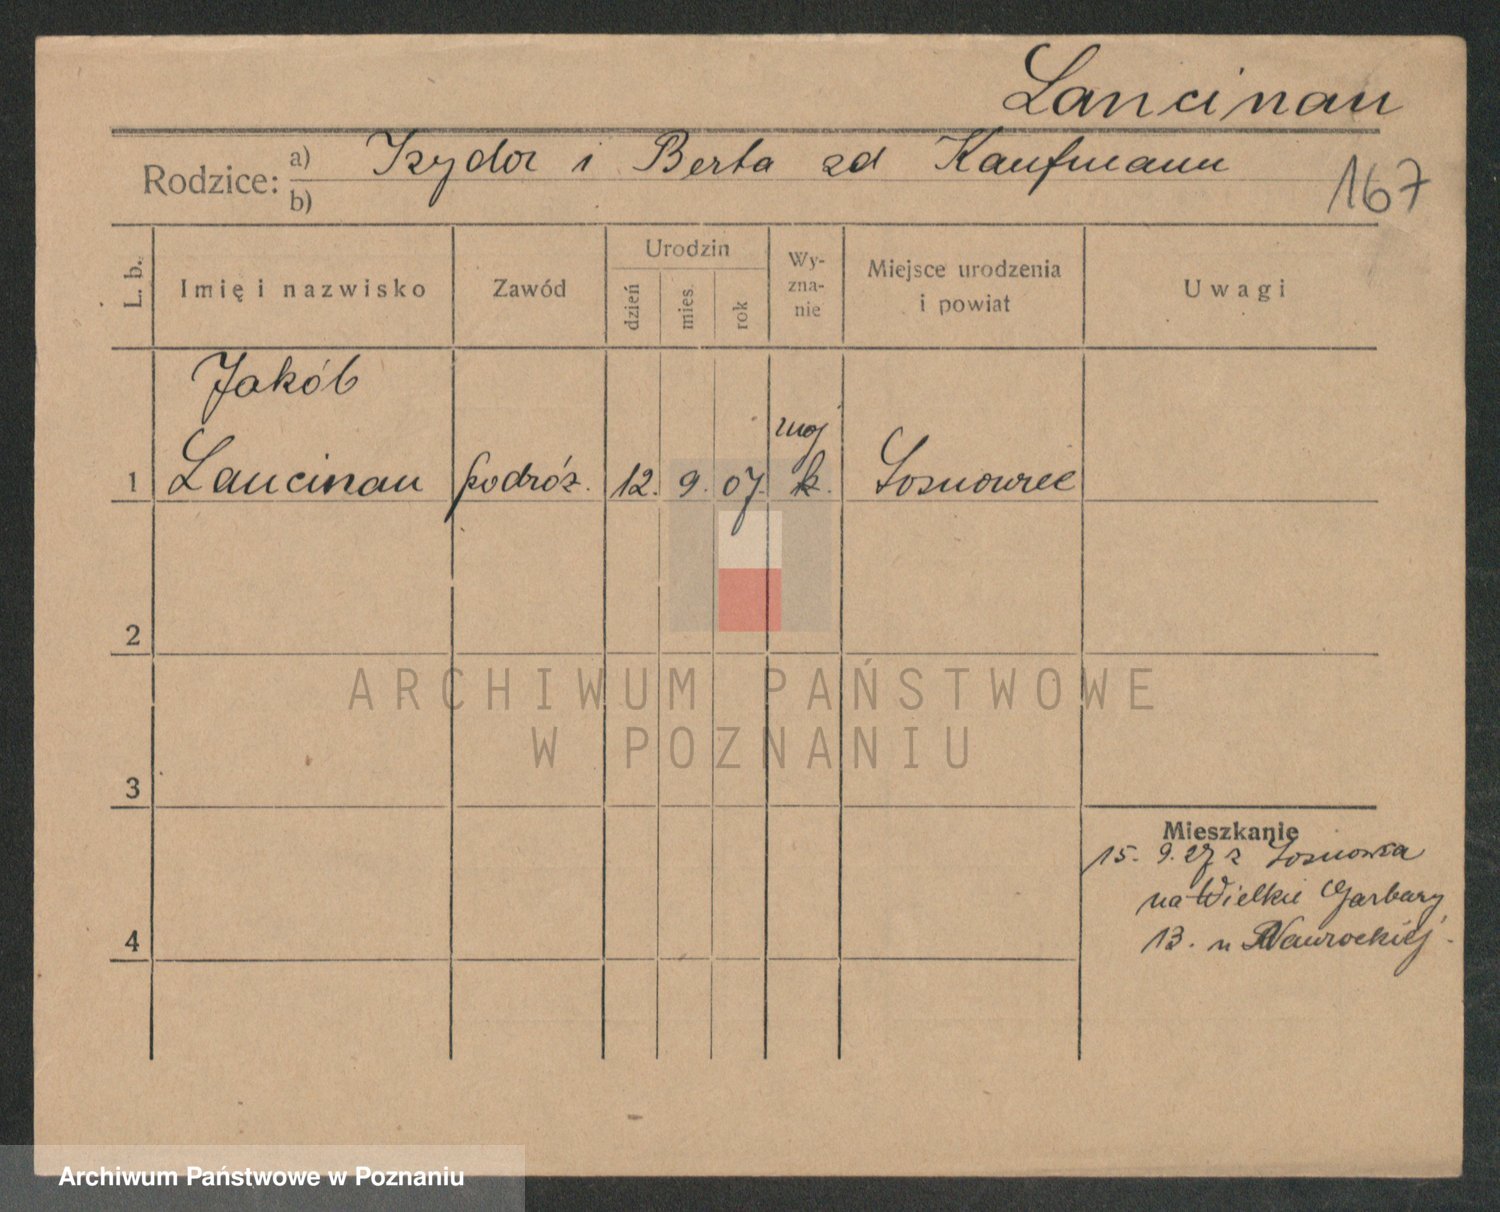 Lancinau
Rodzice: a) Izydor i Berta zd Kaufmann
b)
167
L. b.
Imię i nazwisko
Zawód
Urodzin
dzień
mies.
rok
Wy-
zna-
nie
Miejsce urodzenia
i powiat
Uwagi
Jakób
moj
1 Lancinau podróż. 12. 9. 07. k. Sosnowiec
2
ARCHIWUM PAŃSTWOWE
W POZNANIU
3
Mieszkanie
15. 9. 27 z Sosnowca
na Wielkie Garbary
13. u Nawrockiej.
4
Archiwum Państwowe w Poznaniu